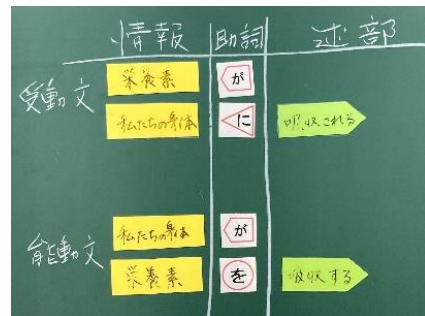 情報 助詞 述部
受動文
栄養素 が
私たちの身体 に 吸収される
能動文
私たちの身体 が
栄養素 を 吸収する